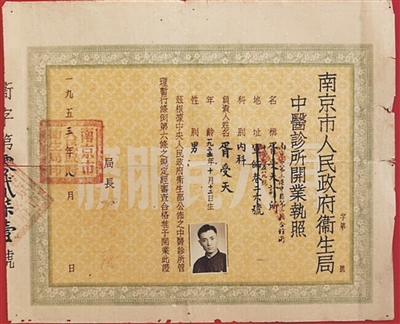 南京市人民政府衛生局
中醫診所開業執照
字第 號
名稱
地址
科別 內科
負責人姓名 胥受天
年齡 一九二五年十月十三日生
性別 男
茲根據中央人民政府衛生部公佈之中醫診所管
理暫行條例第六條之規定經審查合格准予開業此證
局長
一九五三年八月 日
南京市
衛字第零貳柒壹號